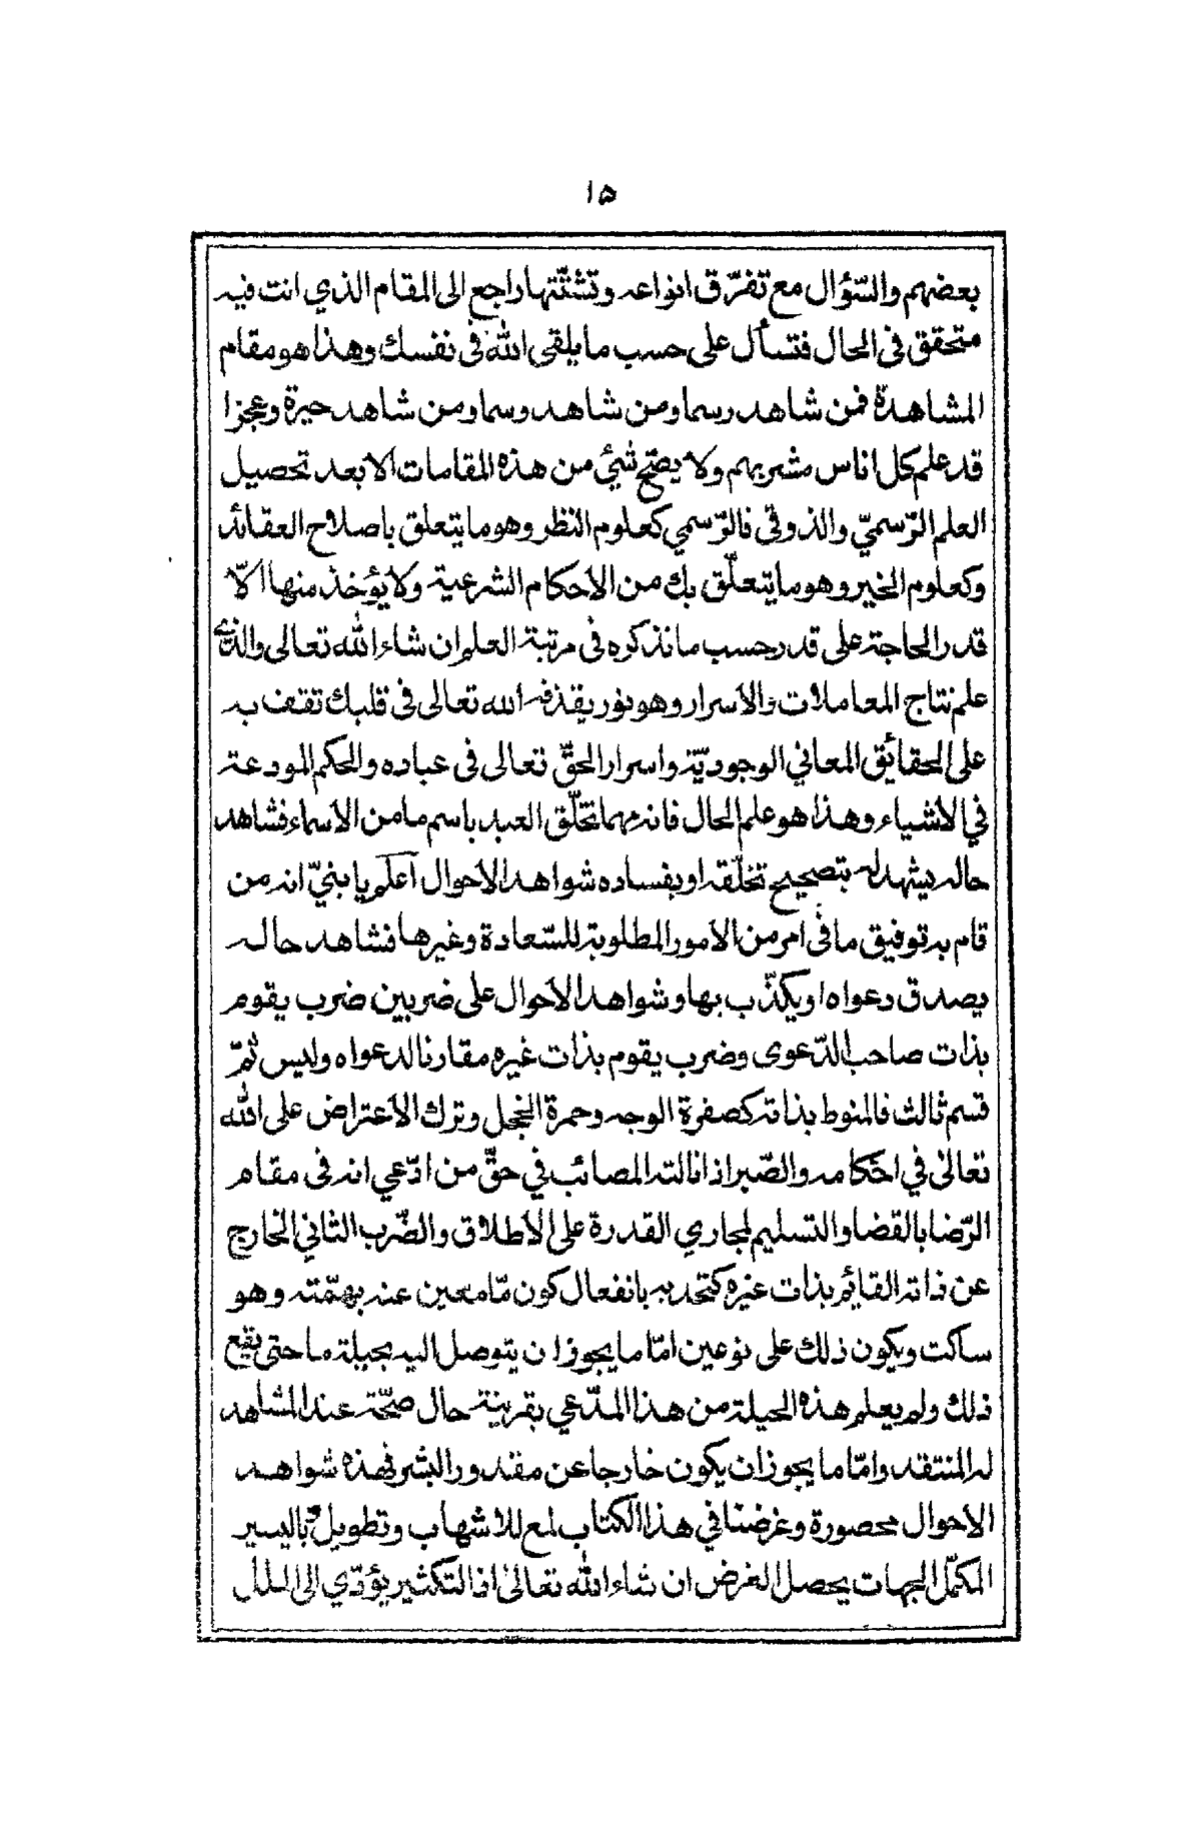 ١٥
بعضهم والسّؤال مع تفرّق انواعه وتشتّتها راجع الى المقام الذي انت فيه
متحقق في الحال فتسأل على حسب ما يلقى الله في نفسك وهذا هو مقام
المشاهدة فمن شاهد رسما ومن شاهد وسما ومن شاهد حيرة وعجزا
قد علم كل اناس مشربهم ولا يصّح شئ من هذه المقامات الا بعد تحصيل
العلم الرّسميّ والذوقى فالرّسمي كعلوم النظر وهو ما يتعلق باصلاح العقائد
وكعلوم الخير وهو ما يتعلّق بك من الأحكام الشرعية ولا يؤخذ منها الّا
قدر الحاجة على قدر حسب ما نذكره فى مرتبة العلم ان شاء الله تعالى والذي
علم نتاج المعاملات والأسرار وهو نور يقذفه الله تعالى فى قلبك تقف به
على الحقائق المعاني الوجوديّة واسرار الحقّ تعالى فى عباده والحكم المودعة
في الأشياء وهذا هو علم الحال فانه مهما تخلّق العبد باسم ما من الأسماء فشاهد
حاله يشهد له بتصحيح تخلّقه او بفساده شواهد الأحوال اعلم يا بنيّ انه من
قام به توفيق ما فى امر من الأمور المطلوبة للسّعادة وغيرها فشاهد حاله
يصدق دعواه او يكذّب بها وشواهد الأحوال على ضربين ضرب يقوم
بذات صاحب الدّعوى وضرب يقوم بذات غيره مقارنا لدعواه وليس ثمّ
قسم ثالث فالمنوط بذاته كصفرة الوجه وحمرة الخجل وترك الأعتراض على الله
تعالى في احكامه والصّبر اذا نالته المصائب في حقّ من ادّعي انه فى مقام
الرّضا بالقضا والتسليم لمجاري القدرة على الأطلاق والضّرب الثاني الخارج
عن ذاته القائم بذات غيره كتحديه بانفعال كون مّا معين عنه بهمّته وهو
ساكت ويكون ذلك على نوعين امّا ما يجوز ان يتوصل اليه بحيلة ما حتى يقع
ذلك ولم يعلم هذه الحيلة من هذا المدّعي بقرينة حال صحّة عند المشاهد
له المنتقد وامّا ما يجوز ان يكون خارجا عن مقدور البشر فهذه شواهد
الأحوال محصورة وغرضنا في هذا الكتاب لمع للاشهاب وتطويل باليسير
المكمّل الجهات يحصل الغرض ان شاء الله تعالى اذ التكثير يؤدّي الى الملل